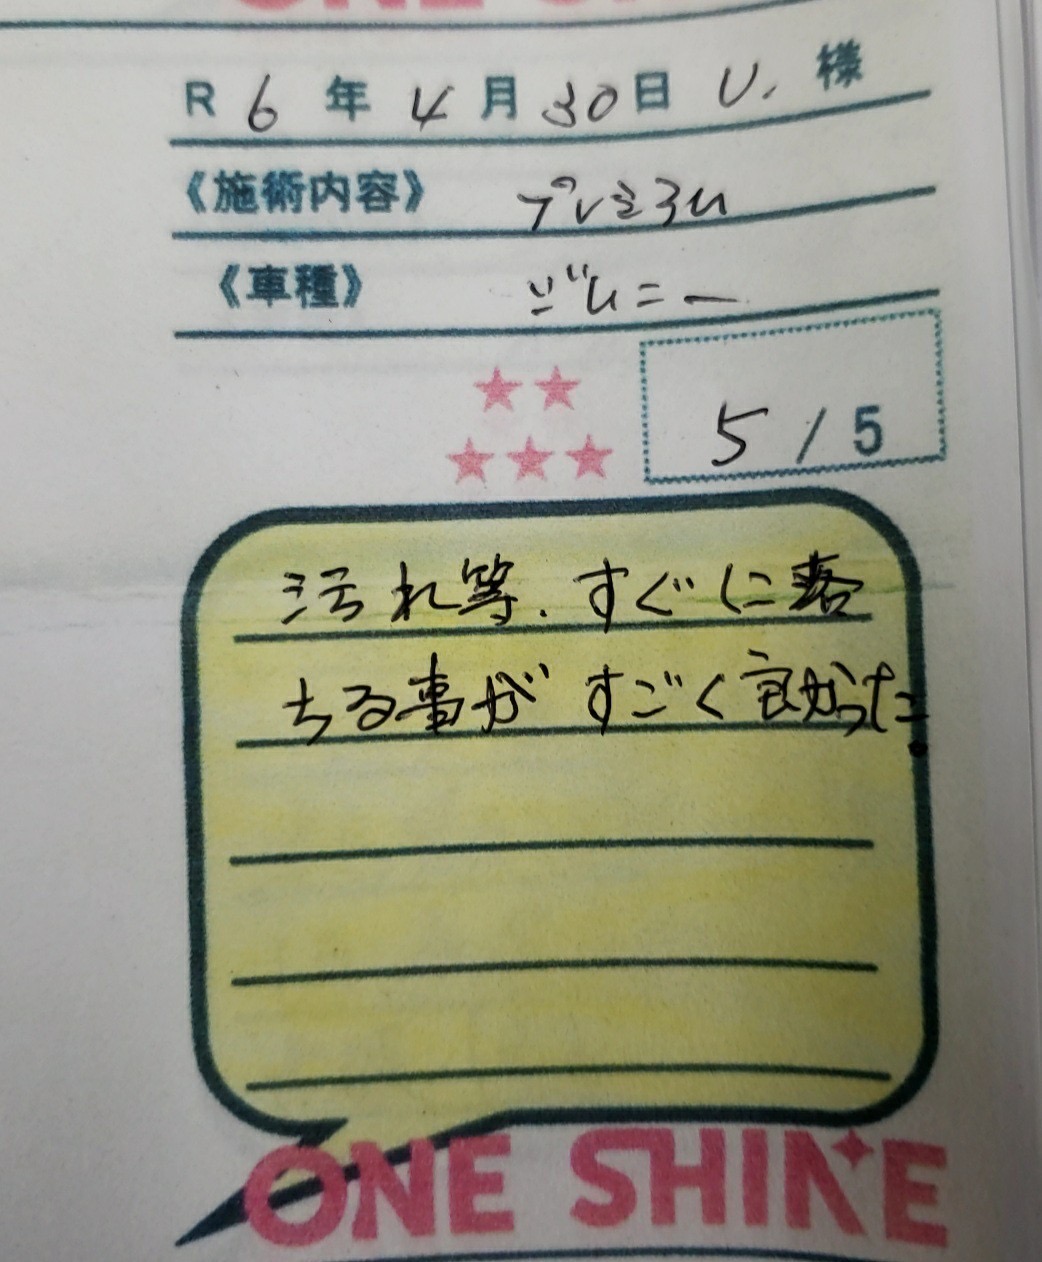 R 6 年 4 月 30 日 U. 様
《施術内容》 プレミアム
《車種》 ジムニー
5 / 5
汚れ等、すぐに落
ちる事がすごく良かった。
ONE SHINE